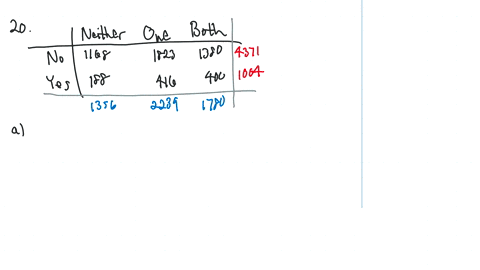 20.
Neither One Both
No 1168 1823 1380 4371
Yes 188 416 400 1004
1356 2239 1780
a)